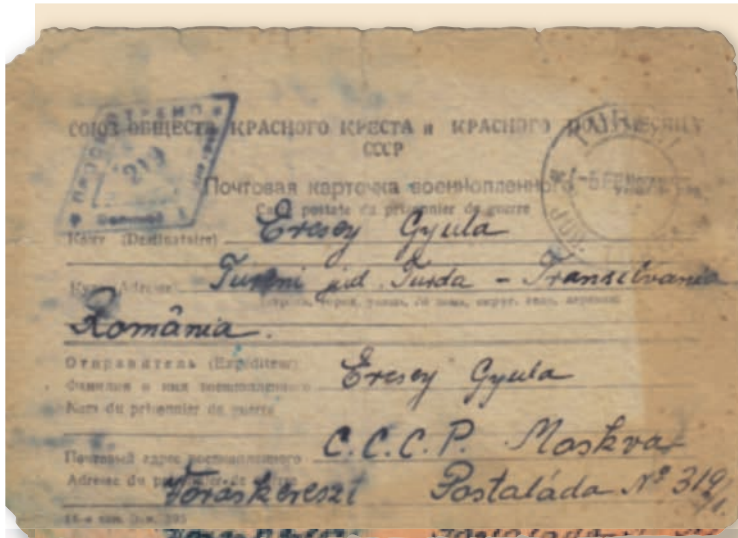 ПРОСМОТРЕНО
219
СОЮЗ ОБЩЕСТВ КРАСНОГО КРЕСТА и КРАСНОГО ПОЛУМЕСЯЦА
СССР
Почтовая карточка военнопленного
Carte postale du prisonnier de guerre
Кому (Destinataire) Ercsey Gyula
Куда (Adresse) Tureni jud. Turda - Transilvania
România.
Отправитель (Expéditeur)
Фамилия и имя военнопленного Ercsey Gyula
Nom du prisonnier de guerre
Почтовый адрес военнопленного C.C.C.P. Moskva
Adresse du prisonnier de guerre Vöröskereszt Postaláda Nº 319/1.